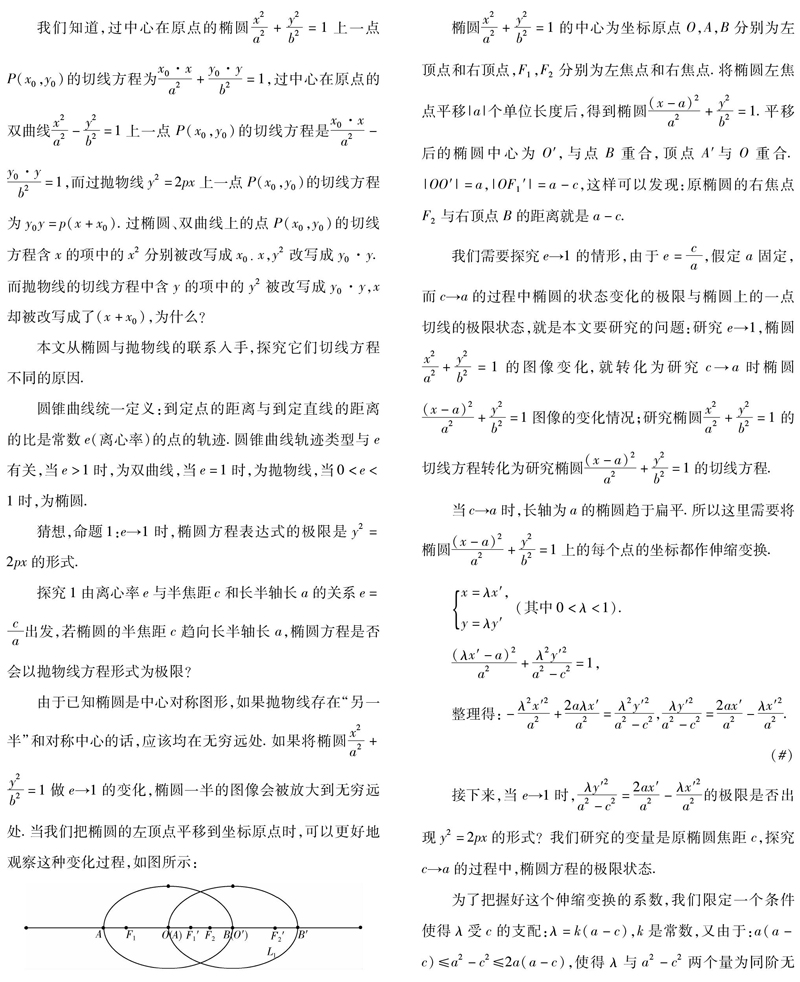 我们知道,过中心在原点的椭圆x²/a² + y²/b² = 1 上一点
P(x₀,y₀)的切线方程为x₀·x/a² + y₀·y/b² = 1,过中心在原点的
双曲线x²/a² − y²/b² = 1 上一点 P(x₀,y₀)的切线方程是x₀·x/a² −
y₀·y/b² = 1,而过抛物线 y² = 2px 上一点 P(x₀,y₀)的切线方程
为 y₀y = p(x + x₀). 过椭圆、双曲线上的点 P(x₀,y₀)的切线
方程含 x 的项中的 x² 分别被改写成 x₀ . x,y² 改写成 y₀ · y.
而抛物线的切线方程中含 y 的项中的 y² 被改写成 y₀ · y,x
却被改写成了(x + x₀),为什么?
本文从椭圆与抛物线的联系入手,探究它们切线方程
不同的原因.
圆锥曲线统一定义:到定点的距离与到定直线的距离
的比是常数 e(离心率)的点的轨迹. 圆锥曲线轨迹类型与 e
有关,当 e > 1 时,为双曲线,当 e = 1 时,为抛物线,当 0 < e <
1 时,为椭圆.
猜想,命题 1:e→1 时,椭圆方程表达式的极限是 y² =
2px 的形式.
探究 1 由离心率 e 与半焦距 c 和长半轴长 a 的关系 e =
c/a出发,若椭圆的半焦距 c 趋向长半轴长 a,椭圆方程是否
会以抛物线方程形式为极限?
由于已知椭圆是中心对称图形,如果抛物线存在“另一
半”和对称中心的话,应该均在无穷远处. 如果将椭圆x²/a² +
y²/b² = 1 做 e→1 的变化,椭圆一半的图像会被放大到无穷远
处. 当我们把椭圆的左顶点平移到坐标原点时,可以更好地
观察这种变化过程,如图所示:
A F₁ O(A) F₁′ F₂ B(O′) F₂′ B′
L₁
椭圆x²/a² + y²/b² = 1 的中心为坐标原点 O,A,B 分别为左
顶点和右顶点,F₁,F₂ 分别为左焦点和右焦点. 将椭圆左焦
点平移|a|个单位长度后,得到椭圆(x − a)²/a² + y²/b² = 1. 平移
后的椭圆中心为 O′,与点 B 重合,顶点 A′与 O 重合.
|OO′| = a,|OF₁′| = a − c,这样可以发现:原椭圆的右焦点
F₂ 与右顶点 B 的距离就是 a − c.
我们需要探究 e→1 的情形,由于 e = c/a,假定 a 固定,
而 c→a 的过程中椭圆的状态变化的极限与椭圆上的一点
切线的极限状态,就是本文要研究的问题:研究 e→1,椭圆
x²/a² + y²/b² = 1 的图像变化,就转化为研究 c→a 时椭圆
(x − a)²/a² + y²/b² = 1 图像的变化情况;研究椭圆x²/a² + y²/b² = 1 的
切线方程转化为研究椭圆(x − a)²/a² + y²/b² = 1 的切线方程.
当 c→a 时,长轴为 a 的椭圆趋于扁平. 所以这里需要将
椭圆(x − a)²/a² + y²/b² = 1 上的每个点的坐标都作伸缩变换.
{x = λx′,
y = λy′ (其中 0 < λ < 1).
(λx′ − a)²/a² + λ²y′²/(a² − c²) = 1,
整理得: − λ²x′²/a² + 2aλx′/a² = λ²y′²/(a² − c²), λy′²/(a² − c²) = 2ax′/a² − λx′²/a².
(#)
接下来,当 e→1 时, λy′²/(a² − c²) = 2ax′/a² − λx′²/a²的极限是否出
现 y² = 2px 的形式? 我们研究的变量是原椭圆焦距 c,探究
c→a 的过程中,椭圆方程的极限状态.
为了把握好这个伸缩变换的系数,我们限定一个条件
使得 λ 受 c 的支配:λ = k(a − c),k 是常数,又由于:a(a −
c) ≤ a² − c² ≤ 2a(a − c),使得 λ 与 a² − c² 两个量为同阶无